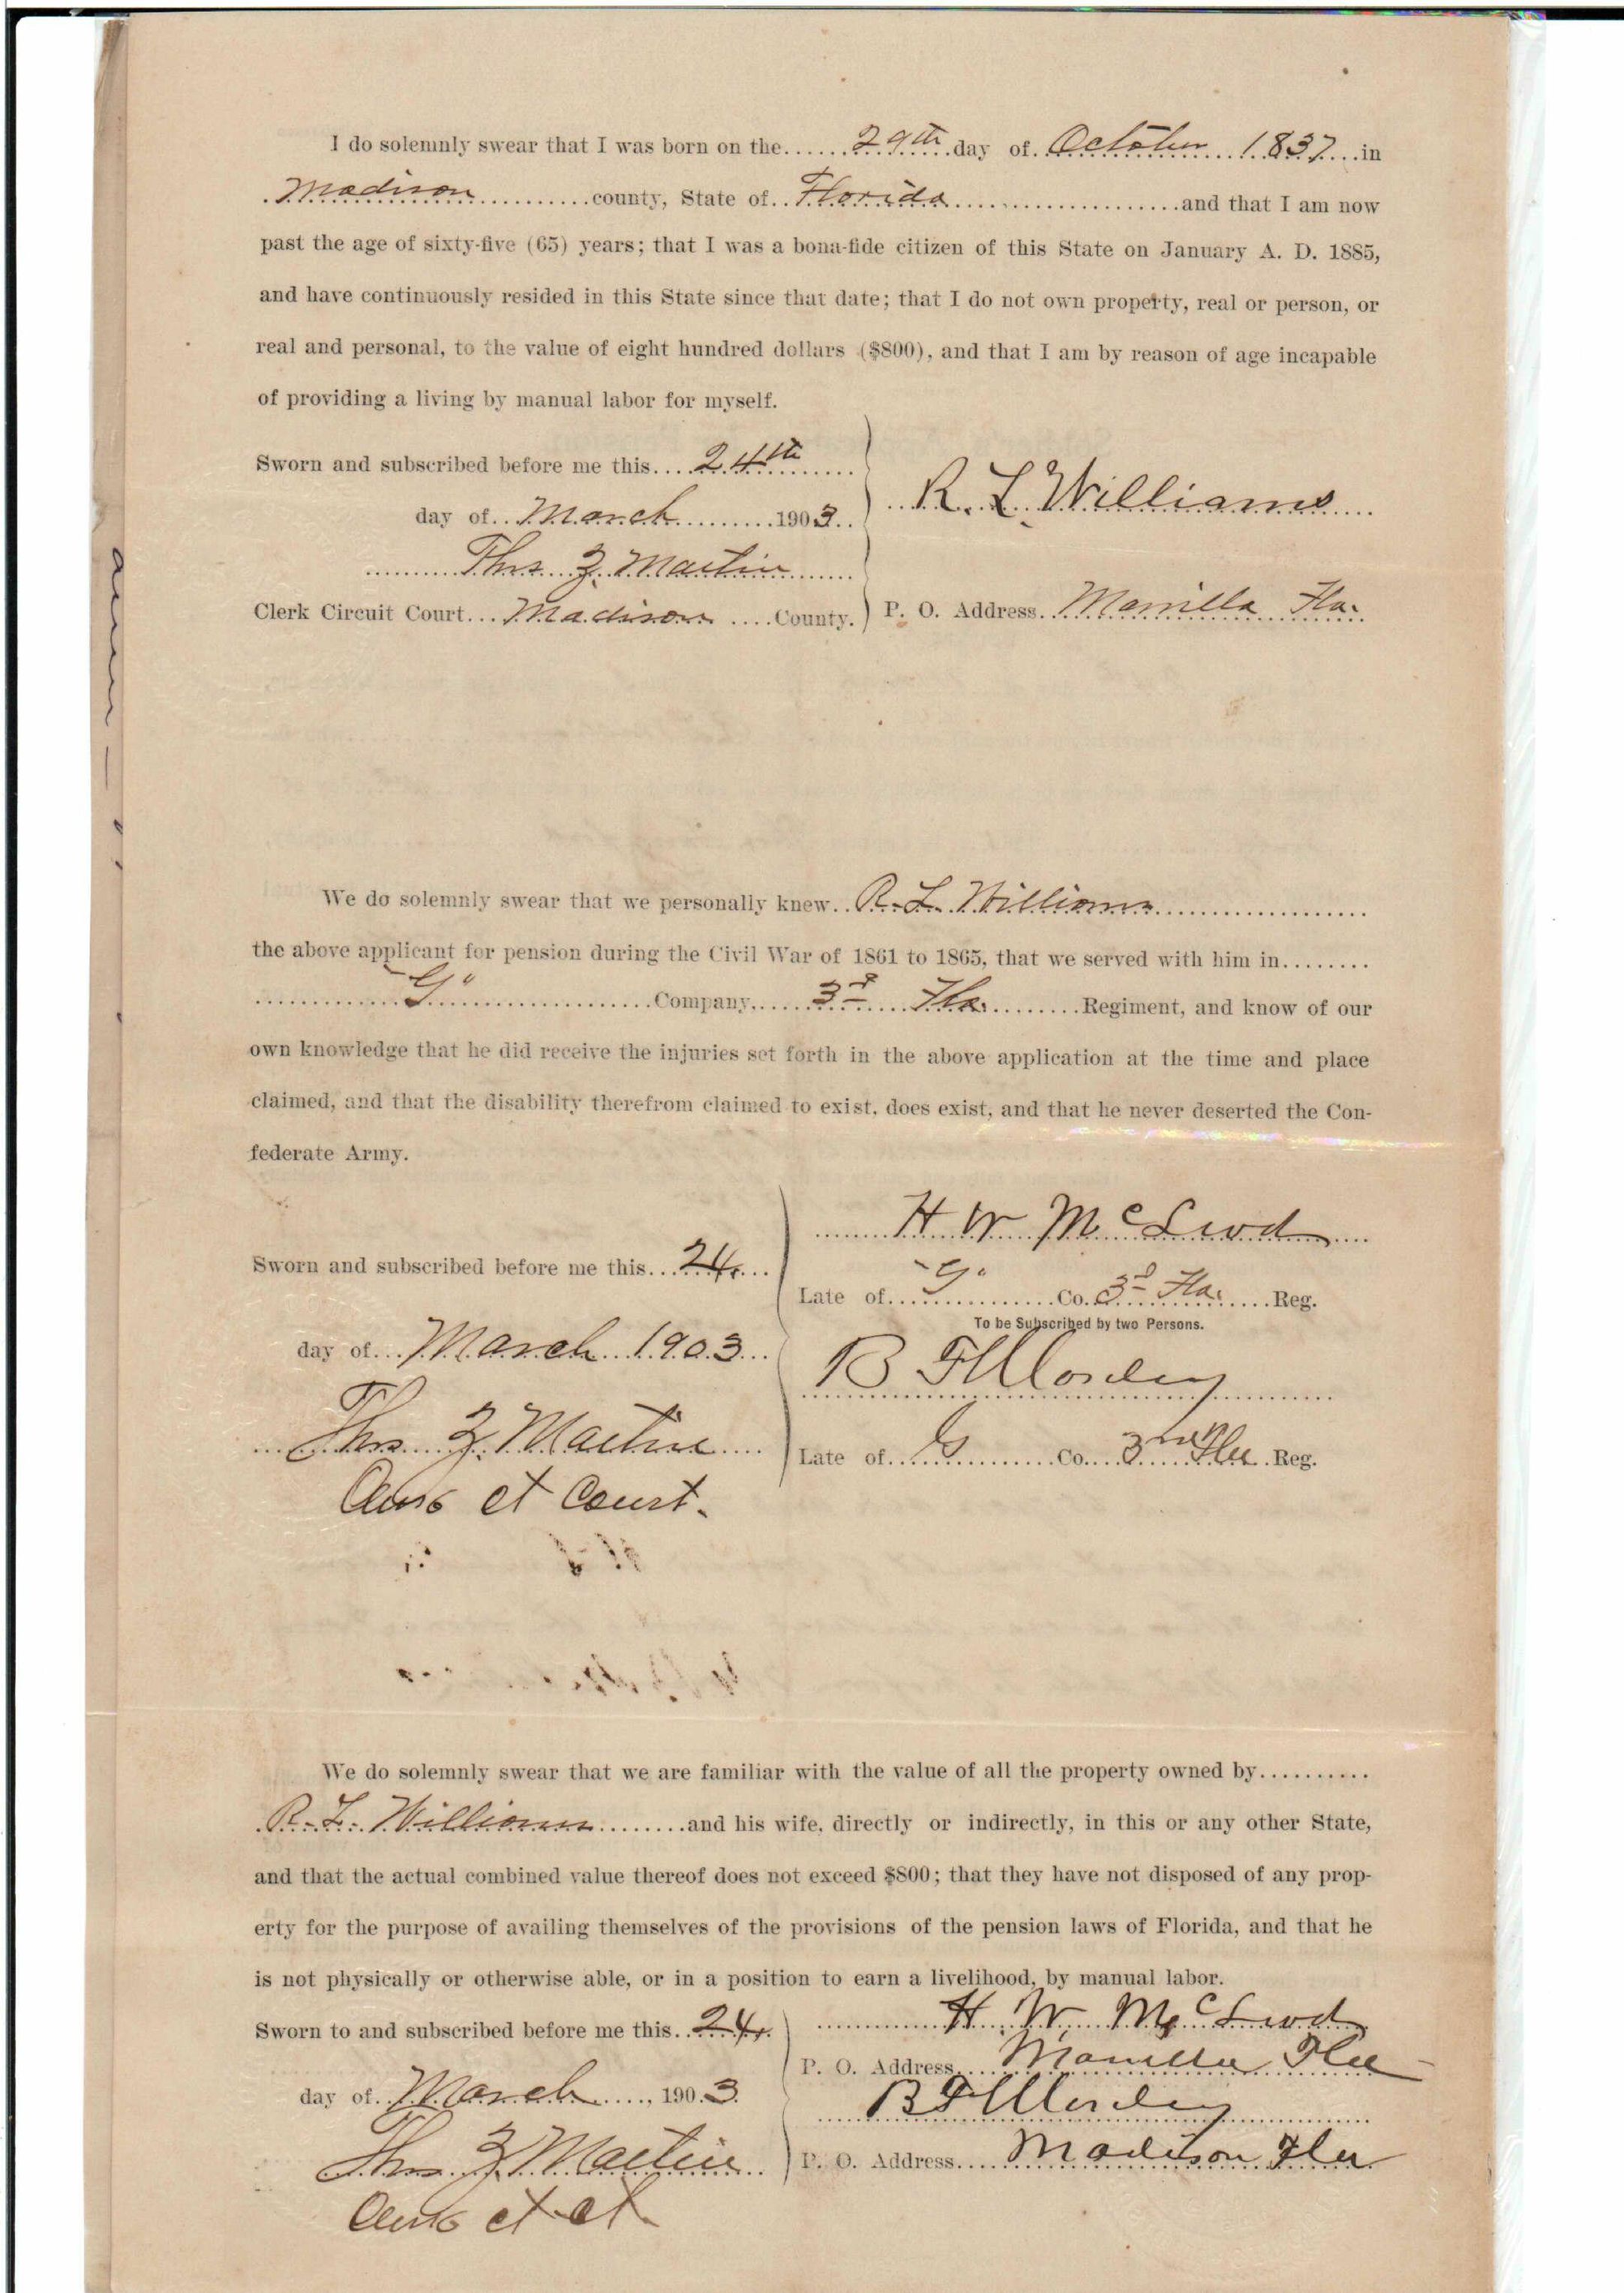 I do solemnly swear that I was born on the 29th day of October 1837 in
Madison county, State of Florida and that I am now
past the age of sixty-five (65) years; that I was a bona-fide citizen of this State on January A. D. 1885,
and have continuously resided in this State since that date; that I do not own property, real or person, or
real and personal, to the value of eight hundred dollars ($800), and that I am by reason of age incapable
of providing a living by manual labor for myself.
Sworn and subscribed before me this 24th
day of March 1903
R. L. Williams
Thos Z. Martin
Clerk Circuit Court Madison County. P. O. Address Manilla Fla.
We do solemnly swear that we personally knew R. L. Williams
the above applicant for pension during the Civil War of 1861 to 1865, that we served with him in
"G" Company, 3d Fla. Regiment, and know of our
own knowledge that he did receive the injuries set forth in the above application at the time and place
claimed, and that the disability therefrom claimed to exist, does exist, and that he never deserted the Con-
federate Army.
H W McLeod
Sworn and subscribed before me this 24
Late of "G" Co. 3d Fla. Reg.
To be Subscribed by two Persons.
day of March 1903
B F
Thos Z. Martin
Late of G Co. 3rd Fla Reg.
Clerk Ct Court.
We do solemnly swear that we are familiar with the value of all the property owned by
R. L. Williams and his wife, directly or indirectly, in this or any other State,
and that the actual combined value thereof does not exceed $800; that they have not disposed of any prop-
erty for the purpose of availing themselves of the provisions of the pension laws of Florida, and that he
is not physically or otherwise able, or in a position to earn a livelihood, by manual labor.
H. W. McLeod
Sworn to and subscribed before me this 24
P. O. Address Manilla Fla
day of March, 1903
B F
Thos Z Martin
P. O. Address Madison Fla
Clerk Ct Ct